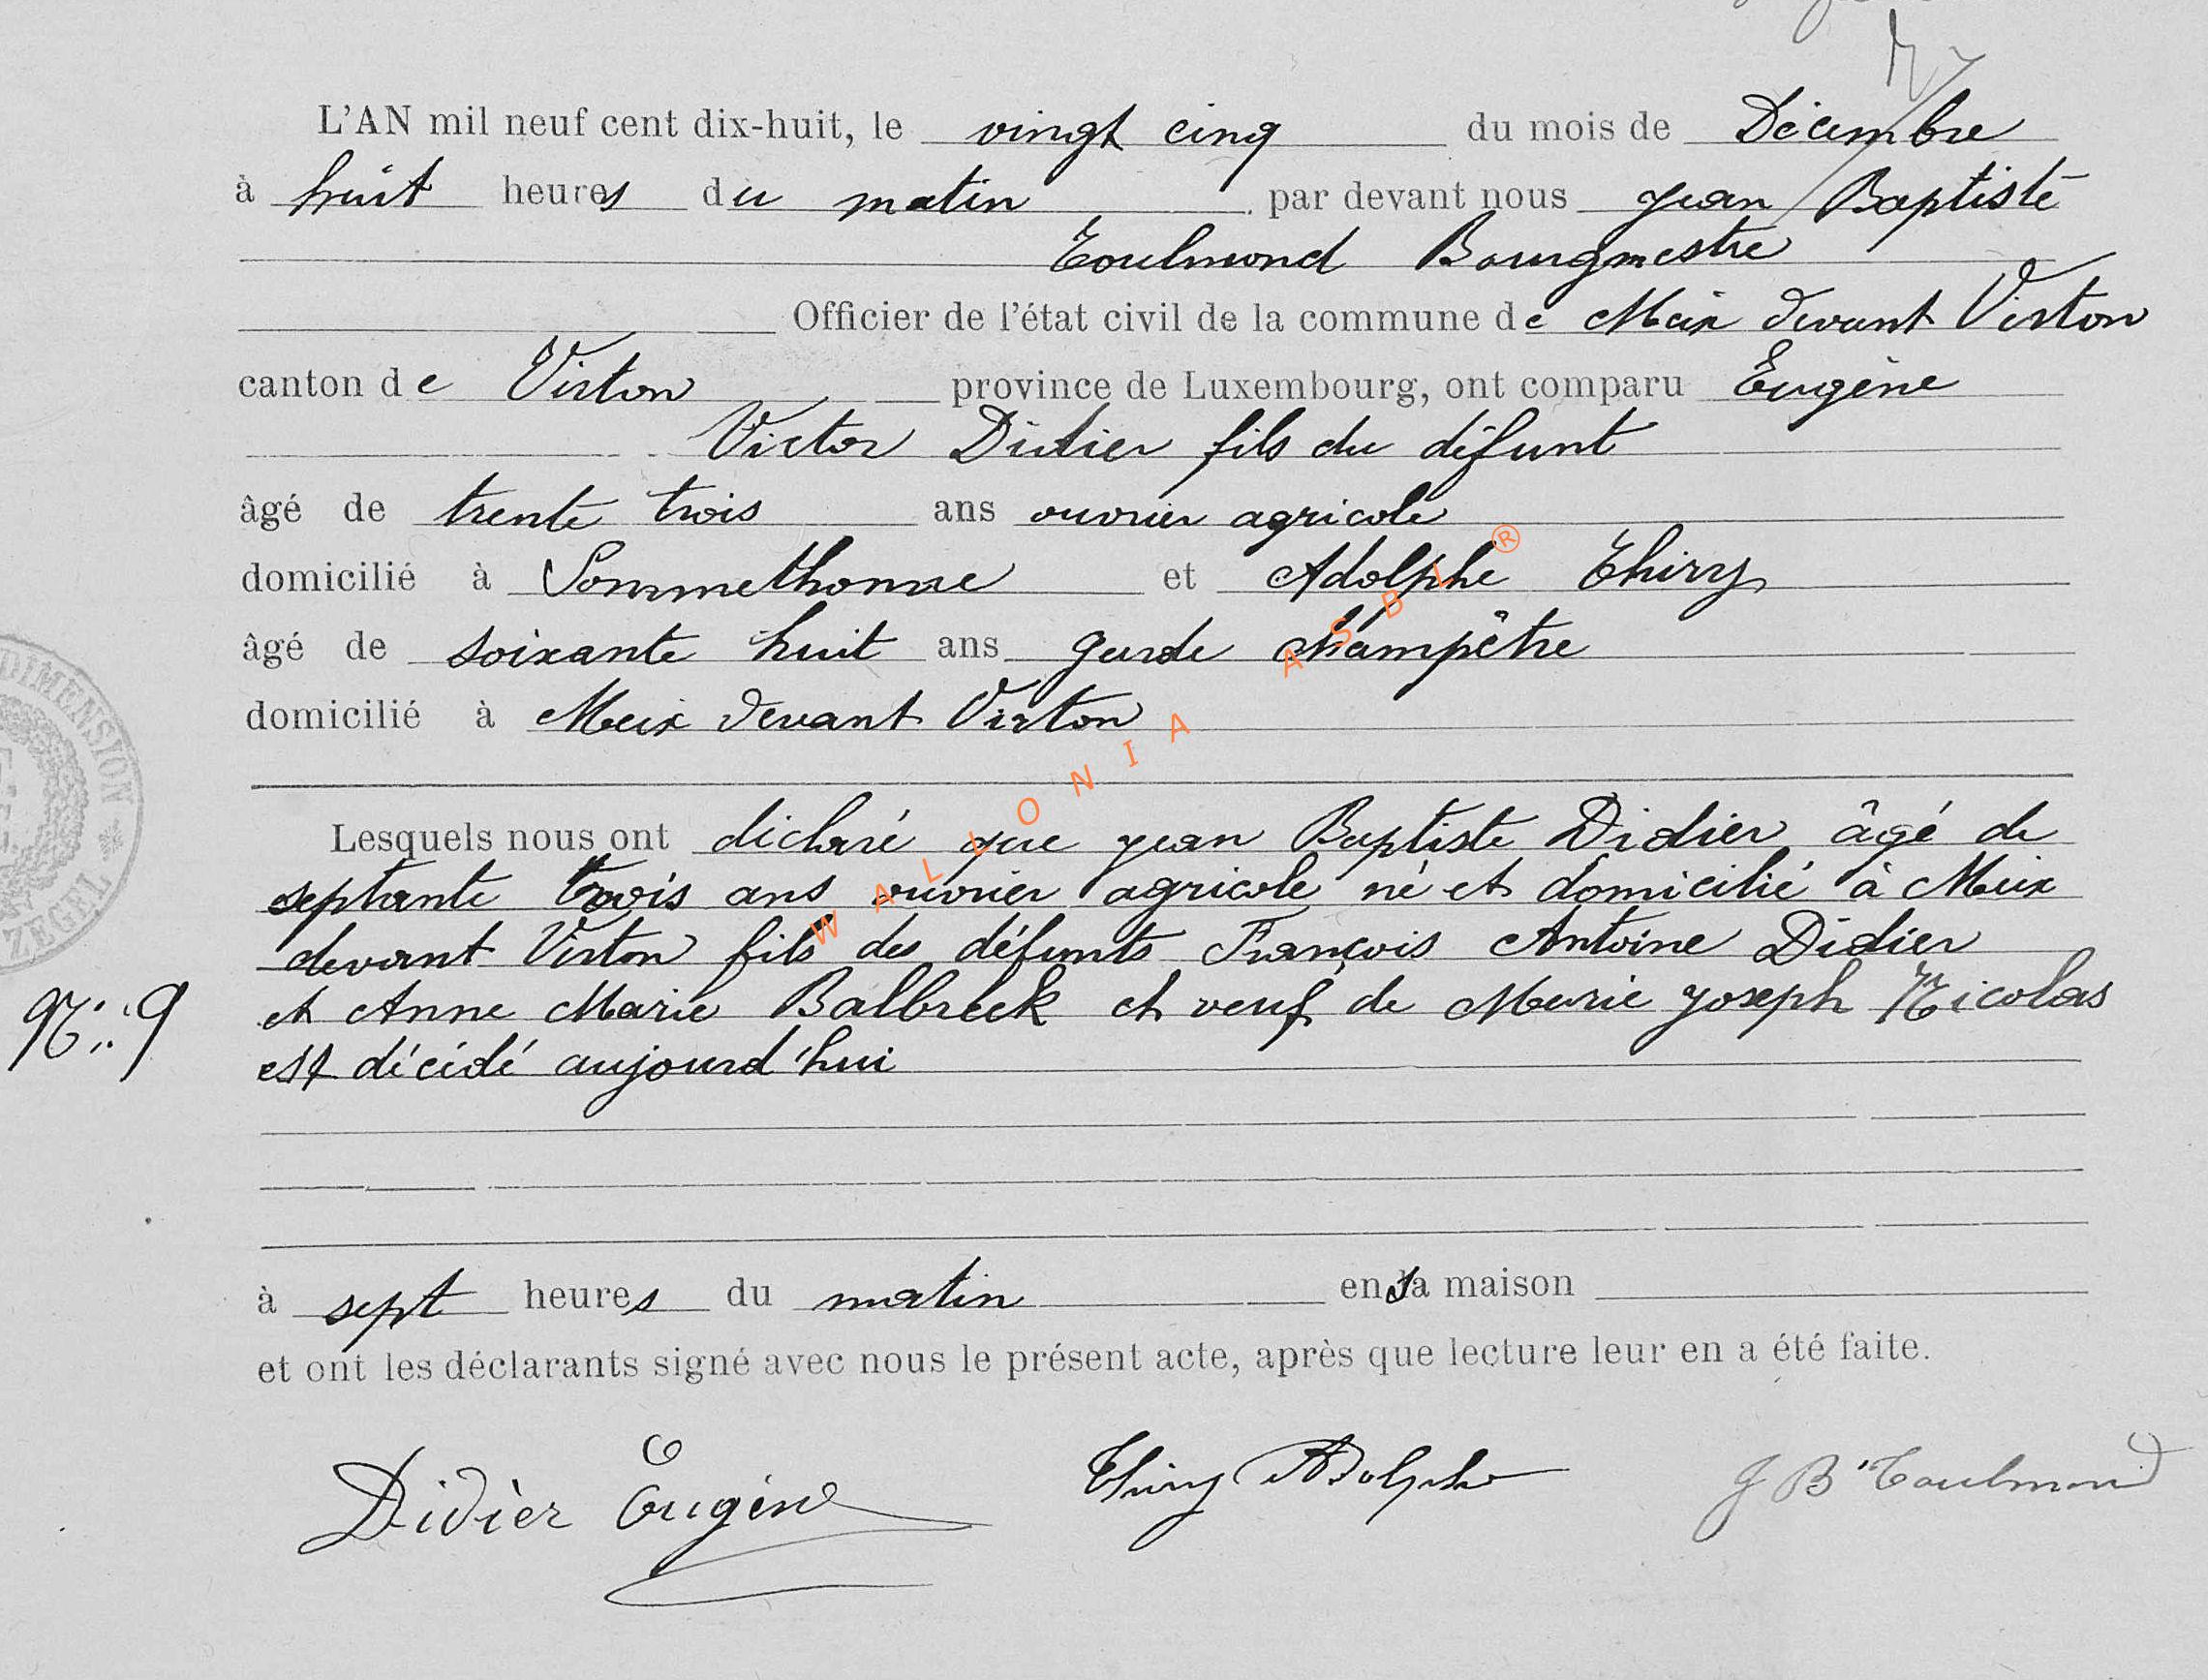 L'AN mil neuf cent dix-huit, le vingt cinq du mois de Décembre
à huit heures du matin par devant nous Jean Baptiste
Toulmond Bourgmestre
Officier de l'état civil de la commune de Meix devant Virton
canton de Virton province de Luxembourg, ont comparu Eugène
Victor Didier fils du défunt
âgé de trente trois ans ouvrier agricole
domicilié à Sommethonne et Adolphe Thiry
âgé de soixante huit ans garde champêtre
domicilié à Meix devant Virton
Lesquels nous ont déclaré que Jean Baptiste Didier âgé de
septante trois ans ouvrier agricole né et domicilié à Meix
devant Virton fils des défunts François Antoine Didier
N: 9
et Anne Marie Balbreck et veuf de Marie Joseph Nicolas
est décédé aujourd'hui
à sept heures du matin en sa maison
et ont les déclarants signé avec nous le présent acte, après que lecture leur en a été faite.
Didièr Eugène Thiry Adolphe J B Toulmond
DIMENSION
ZEGEL
WALLONIA ASBL ®